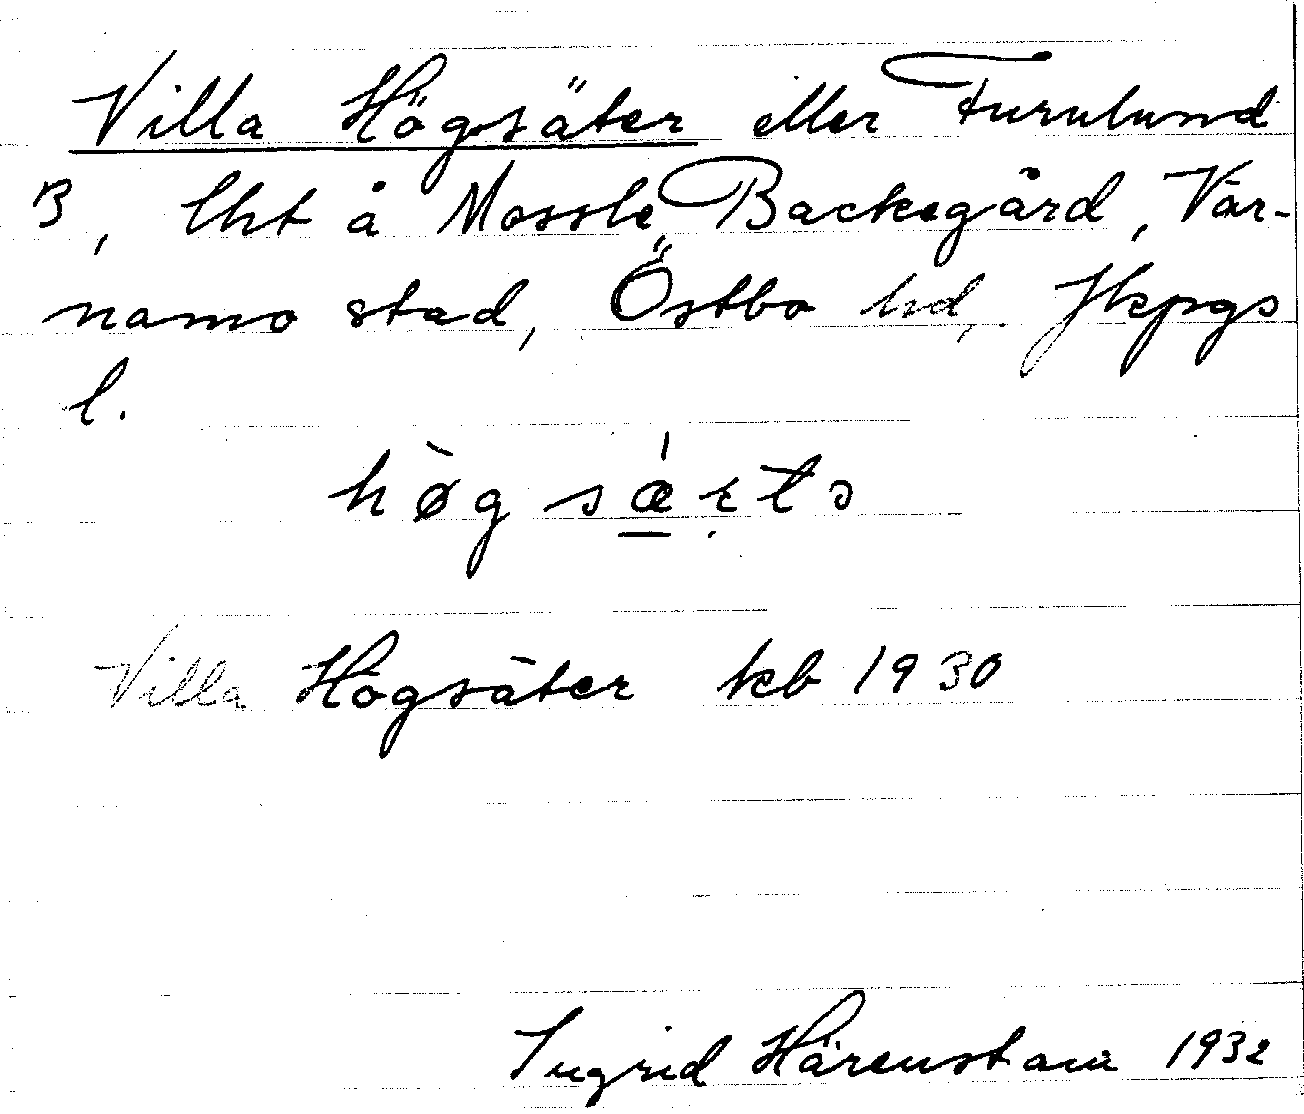 Villa Högsäter eller Furulund
B, lht å Mossle Backegård, Vär-
namo stad, Östbo hd, Jkpgs
l.
Villa Högsäter kb 1930
Ingrid Härenstam 1932